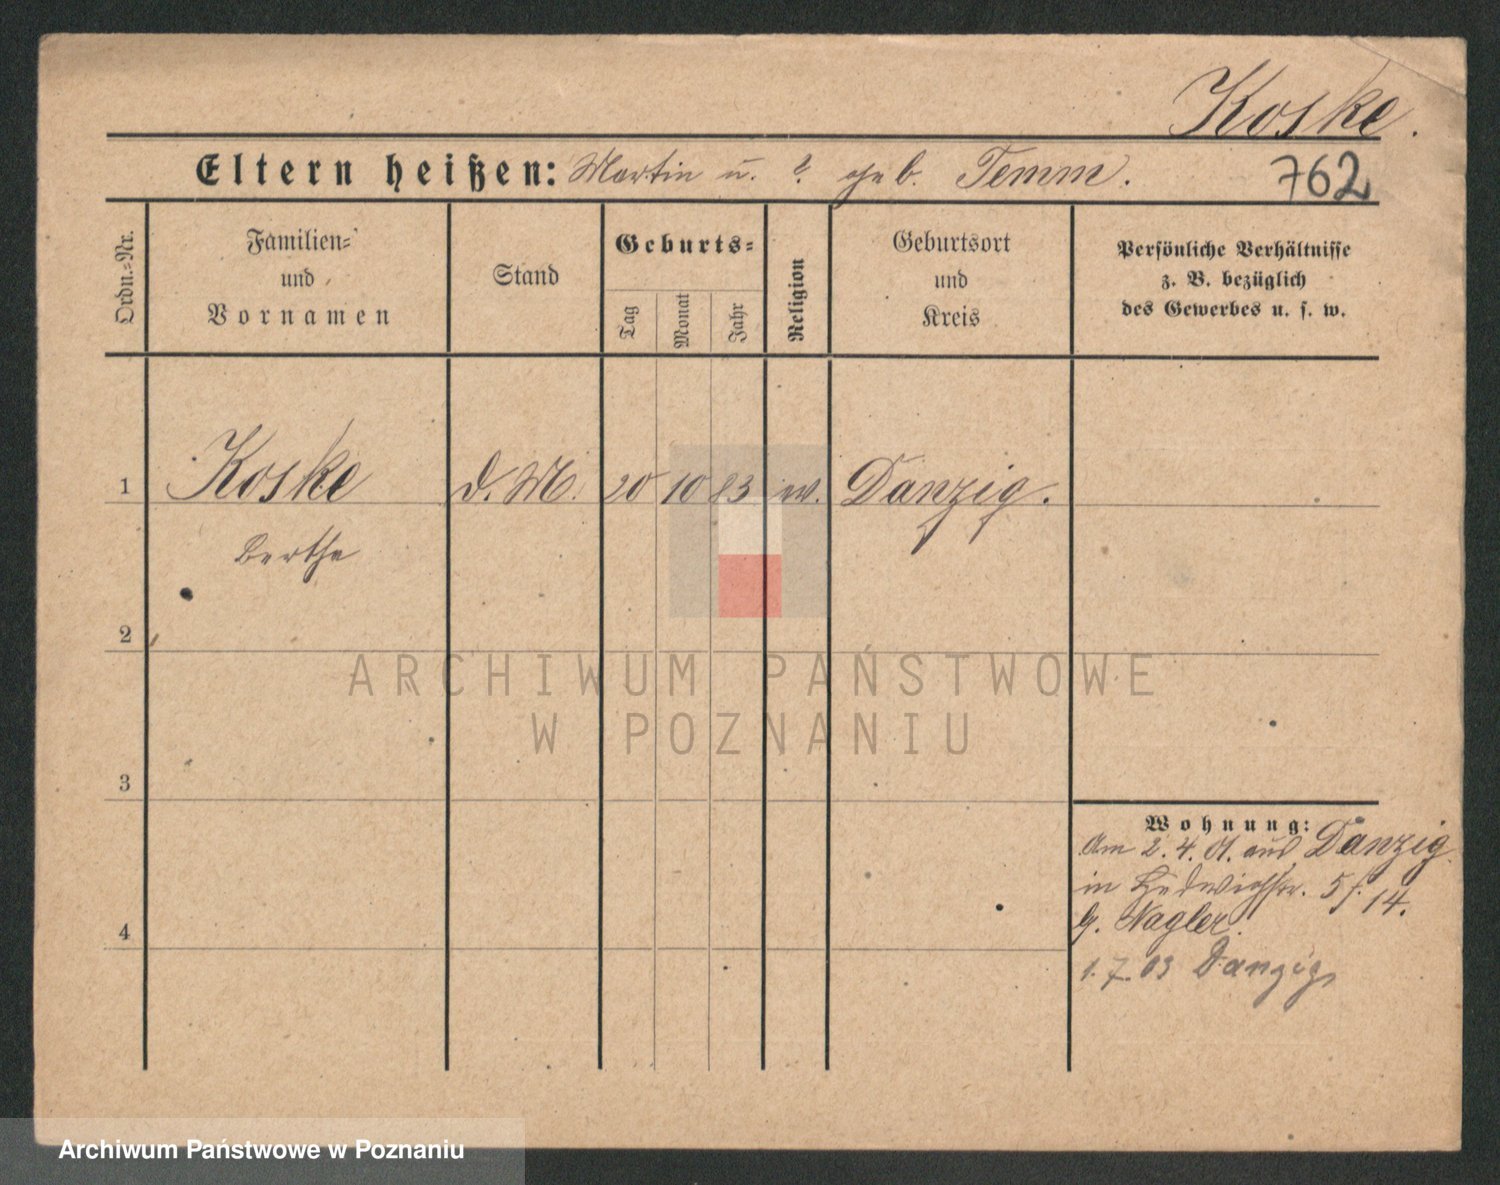 Koske.
Eltern heißen: Martin u. ? geb. Temm.
762
Ordn.=Nr.
Familien=
und
Vornamen
Stand
Geburts=
Tag
Monat
Jahr
Religion
Geburtsort
und
Kreis
Persönliche Verhältnisse
z. B. bezüglich
des Gewerbes u. s. w.
1 Koske d. M. 20 10 83 ev. Danzig.
Berthe
2
3
4
Wohnung:
Am 2. 4. 01. aus Danzig
in Hedwigstr. 14.
b. Nagler.
1. 7. 03 Danzig
ARCHIWUM PAŃSTWOWE
W POZNANIU
Archiwum Państwowe w Poznaniu